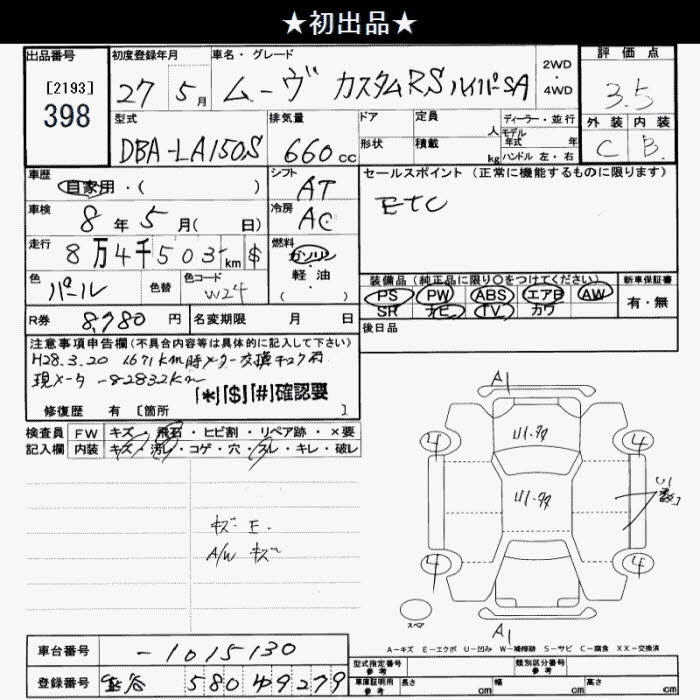 ★初出品★
出品番号 初度登録年月 車名・グレード 2WD・4WD 評価点
[2193] 398 27 5月 ムーヴ カスタムRSハイパーSA 3.5
型式 排気量 ドア 定員 人 ディーラー・並行 外装 内装
DBA-LA150S 660cc 形状 積載 kg モデル年式 年 ハンドル 左・右 C B
車歴 自家用・( ) シフト AT セールスポイント(正常に機能するものに限ります)
車検 8年5月( 日) 冷房 AC ETC
走行 8万4千503km $ 燃料 ガソリン・軽油・( )
色 パール 色替 色コード W24 装備品(純正品に限り○をつけてください) 新車保証書
PS PW ABS エアB AW 有・無
SR ナビ TV カワ
R券 8,780円 名変期限 月 日 後日品
注意事項申告欄(不具合内容等は具体的に記入して下さい)
H28.3.20 1671km時メーター交換チェック有
現メータ -82832km
「*」「$」「#」確認要
修復歴 有[箇所 ]
検査員 FW キズ・飛石・ヒビ割・リペア跡・×要
記入欄 内装 キズ・汚レ・コゲ・穴・スレ・キレ・破レ
A1
4 4
U1
U1
U1
キズ E.
A/W キズ
4 4
スペア
A1
A-キズ E-エクボ U-凹み W-補修跡 S-サビ C-腐食 XX-交換済
車台番号 -1015130
型式指定番号 参考 類別区分番号 参考
登録番号 580 4 9279
車庫証明用 参考 長さ cm 幅 cm 高さ cm